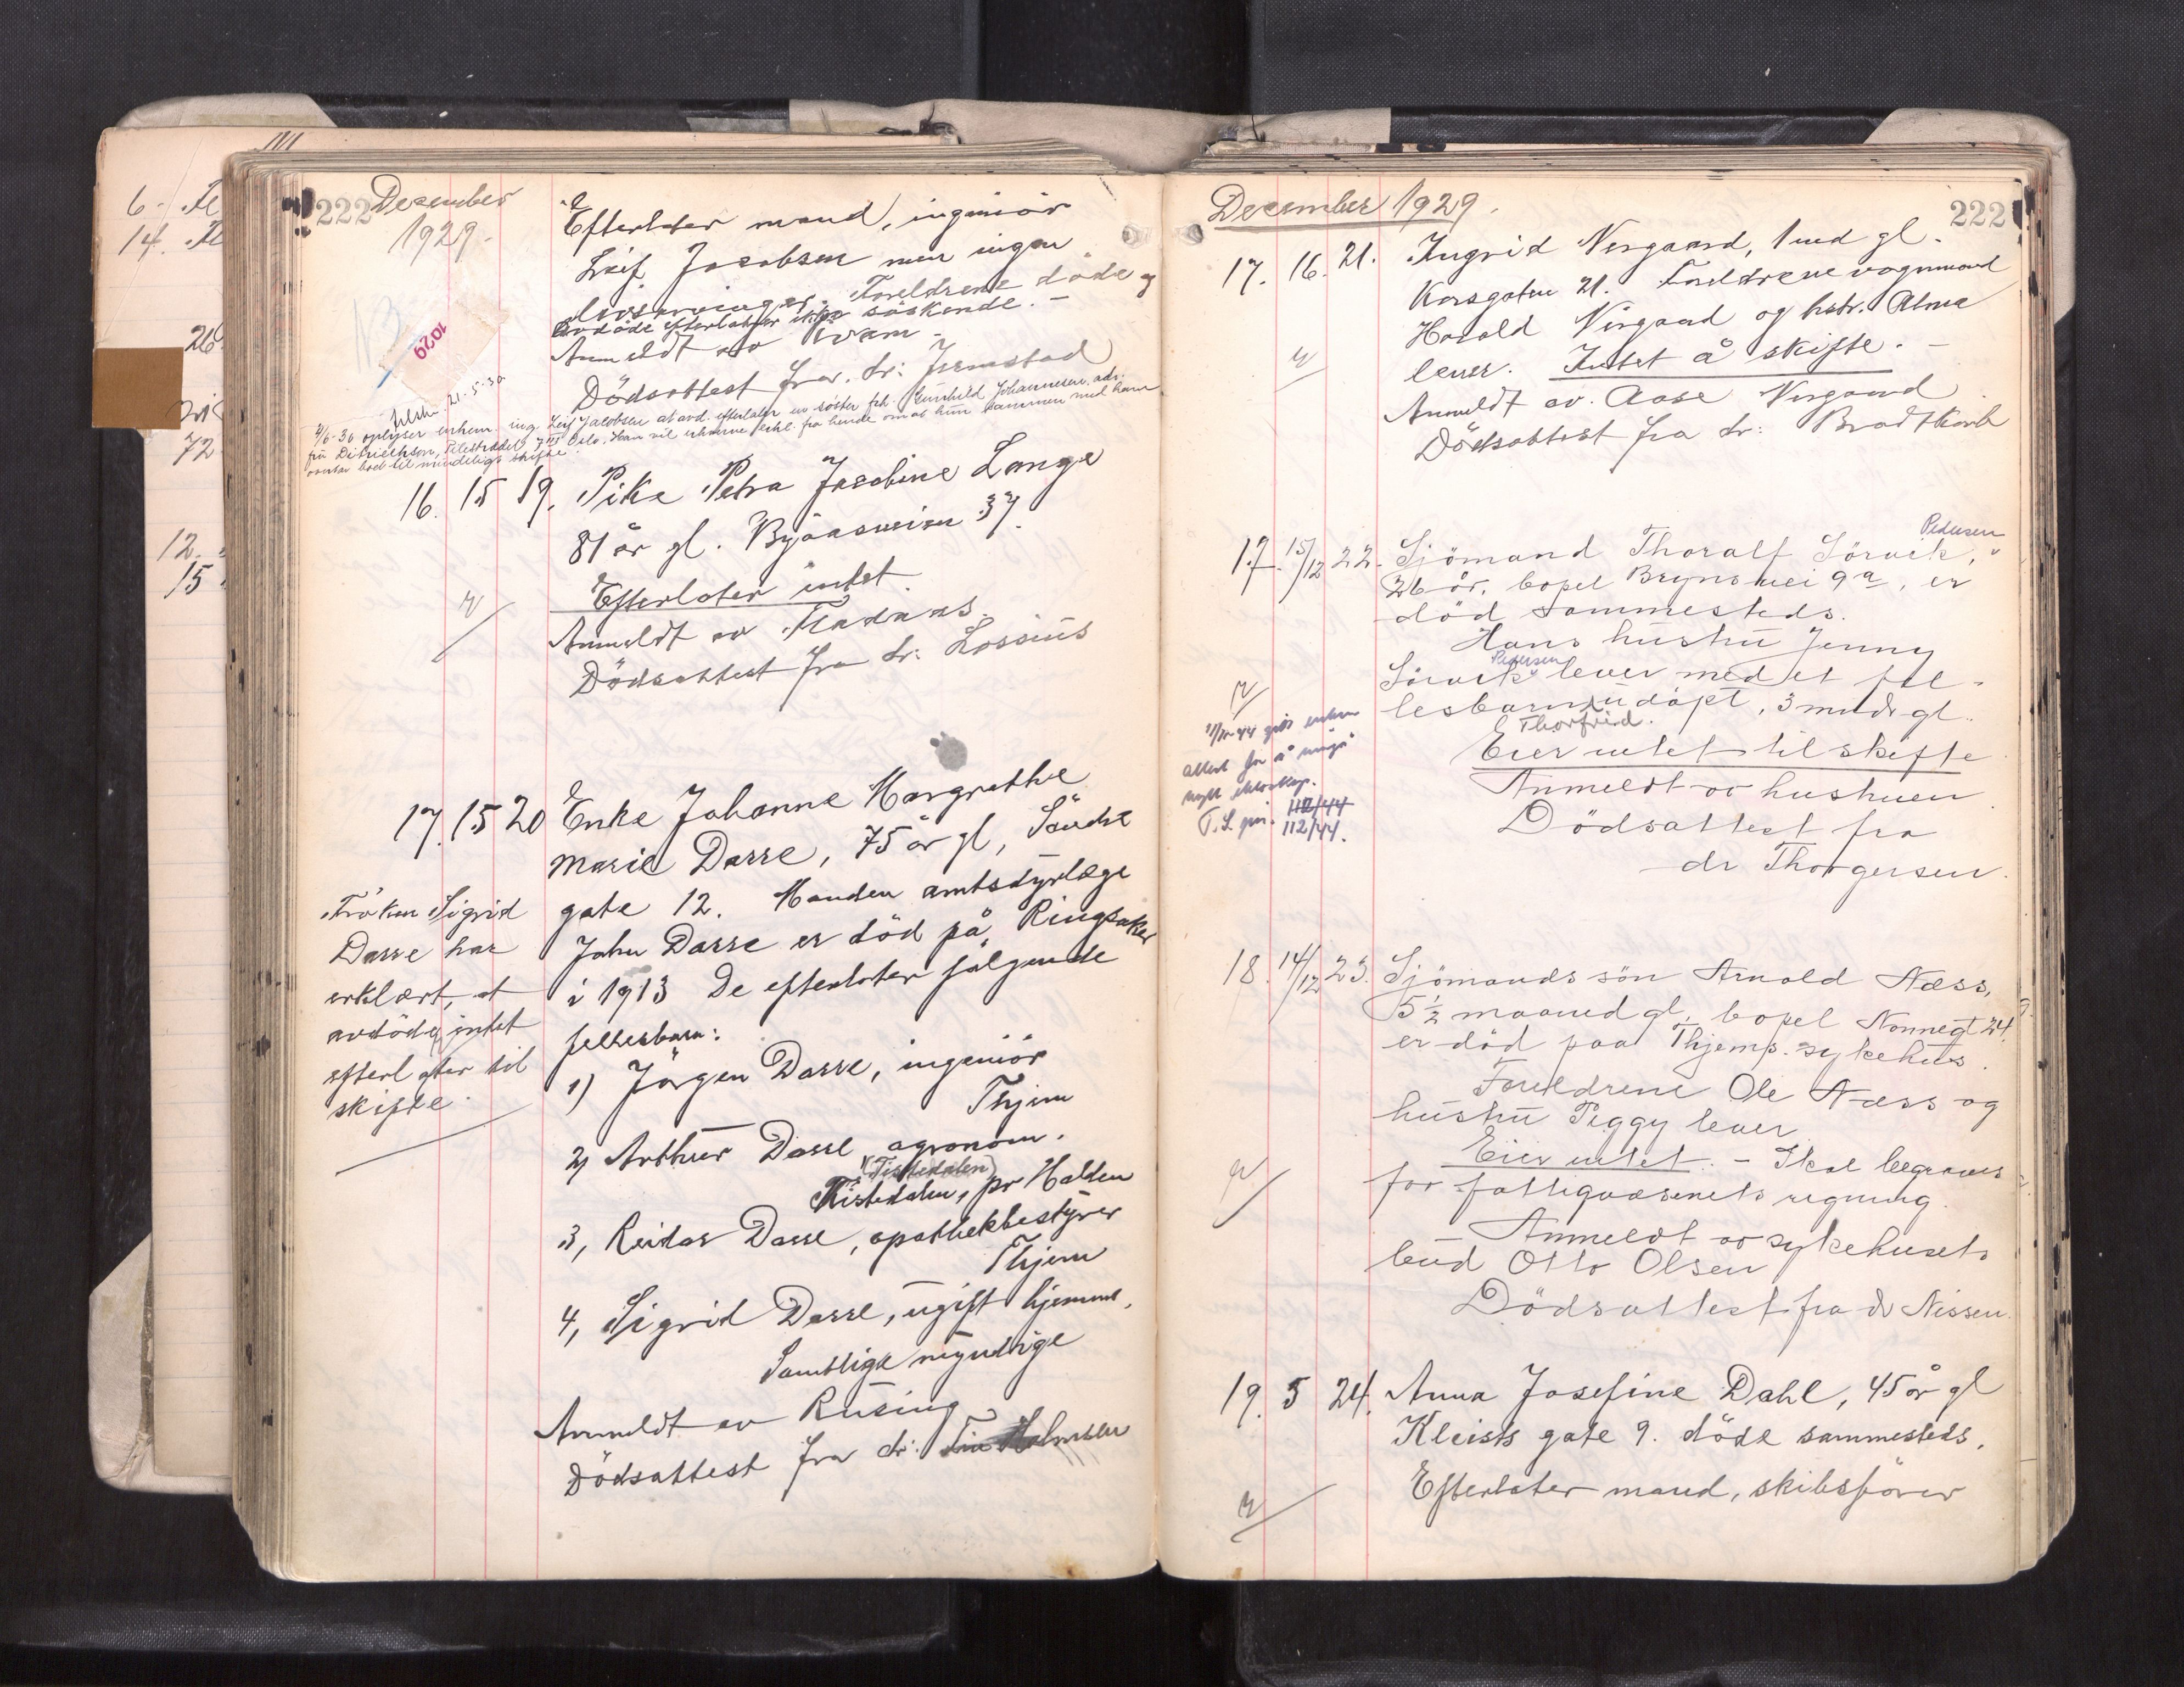 6-
14.
26
72
12.
15
222 December
1929.
Efterlater mand, ingeniör
Leif Jacobsen men ingen
livsarvinger. Foreldrene döde og
avdöde efterlater ikke söskende. -
Anmeldt av Kvam -
Dödsattest fra dr: Jermstad
1029
21-5-30
2/6-30 oplyser enkem. ing. Leif Jacobsen at avd. efterlater en söster frk. Gunhild Johannesen. adr.
fru Ditrichson, Pilestrædet 7 III Oslo. Han vil erhverve erkl. fra hende om at hun sammen med ham
overtar boet til mindelig skifte.
16. 15 19. Pike Petra Jacobine Lange
81 år gl. Byåsveien 37.
Efterlater intet.
Anmeldt av Fladaas.
Dödsattest fra dr: Lossius
17. 15 20 Enke Johanne Margrethe
Marie Dasse, 75 år gl, Söndre
gate 12. Manden amtsdyrlæge
John Dasse er död på Ringsaker
i 1913 De efterlater fölgende
fellesbarn:
1) Jörgen Dasse, ingeniör
Thjem
2) Arthur Dasse agronom.
(Tistedalen)
Tistedalen, pr Halden
3, Reidar Dasse, apothekbestyrer
Thjem
4, Sigrid Dasse, ugift hjemme.
Samtlige myndige
Anmeldt av Rusing
Dödsattest fra dr: Finn Holmsen
Fröken Sigrid
Dasse har
erklært, at
avdöde intet
efterlater til
skifte.
December 1929.
222
17. 16. 21. Ingrid Nergaard, 1 md gl.
Korsgaten 21. Foreldrene vognmand
Harald Nergaard og hstr. Alma
lever. Intet å skifte. -
Anmeldt av. Aase Nergaard
Dödsattest fra dr: Bradtkorb
17. 15/12 22. Sjömand Thoralf Sörvik, Pedersen
26 år, bopel Brynsvei 9a, er
död sammesteds.
Hans hustru Jenny
Pedersen
Sörvik lever med et fel-
lesbarn udöpt, 3 mndr gl.
Thorfrid.
Eier intet til skifte
Anmeldt av hustruen
Dödsattest fra
dr Thorgersen.
attest for å inngå
nytt ekteskap.
112/44
112/44.
18. 14/12 23. Sjömands sön Arnold Næss,
5½ maaned gl, bopel Nonnegt 24,
er död paa Thjems. sykehus.
Foreldrene Ole Næss og
hustru Peggy lever
Eier intet. - Skal begraves
for fattigvæsenets regning.
Anmeldt av sykehusets
bud Otto Olsen
Dödsattest fra dr Nissen.
19. 5 24. Anna Josefine Dahl, 45 år gl
Kleists gate 9. döde sammesteds.
Efterlater mand, skibsförer